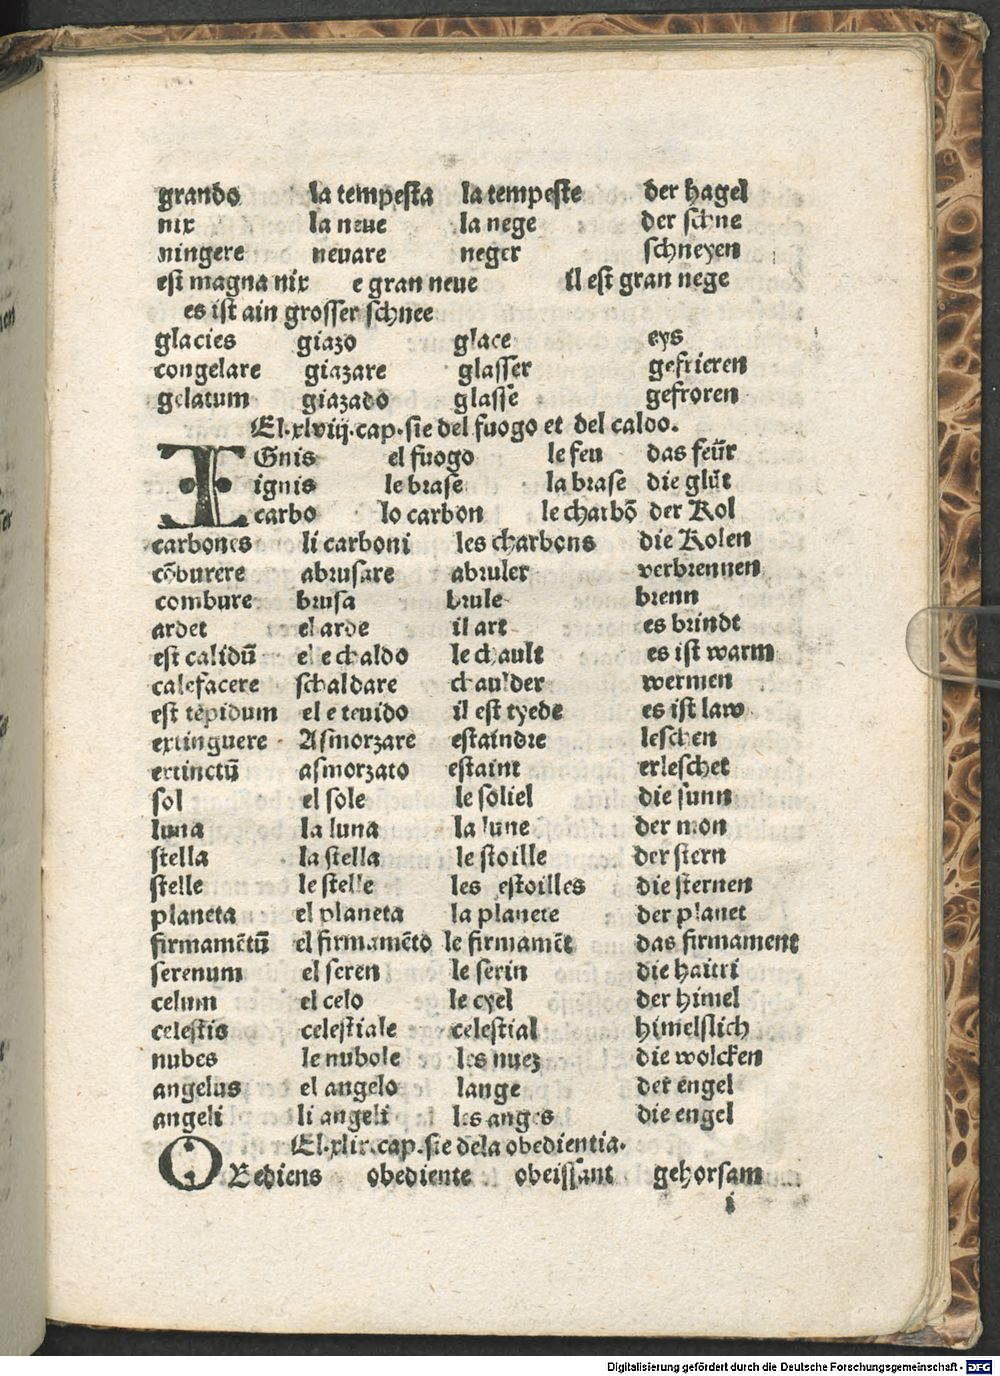 grando la tempesta la tempeste der hagel
nix la neue la nege der schne
ningere neuare neger schneyen
est magna nix e gran neue il est gran nege
es ist ain grosser schnee
glacies giazo glace eys
congelare giazare glasser gefrieren
gelatum giazado glasse gefroren
El.xlviij.cap.sie del fuogo et del caldo.
IGnis el fuogo le feu das feür
ignis le brase la brase die glůt
carbo lo carbon le charbō der Kol
carbones li carboni les charbons die Kolen
cōburere abrusare abruler verbrennen
combure brusa brule brenn
ardet el arde il art es brindt
est calidū el e chaldo le chault es ist warm
calefacere schaldare chaulder wermen
est tēpidum el e teuido il est tyede es ist law
extinguere Asmorzare estaindre leschen
extinctū asmorzato estaint erleschet
sol el sole le soliel die sunn
luna la luna la lune der mon
stella la stella le stoille der stern
stelle le stelle les estoilles die sternen
planeta el planeta la planete der planet
firmamētū el firmamēto le firmamēt das firmament
serenum el seren le serin die haitri
celum el celo le cyel der himel
celestis celestiale celestial himelslich
nubes le nubole les nuez die wolcken
angelus el angelo lange der engel
angeli li angeli les anges die engel
El.xlix.cap.sie dela obedientia.
OBediens obediente obeissant gehorsam
i
Digitalisierung gefördert durch die Deutsche Forschungsgemeinschaft - DFG